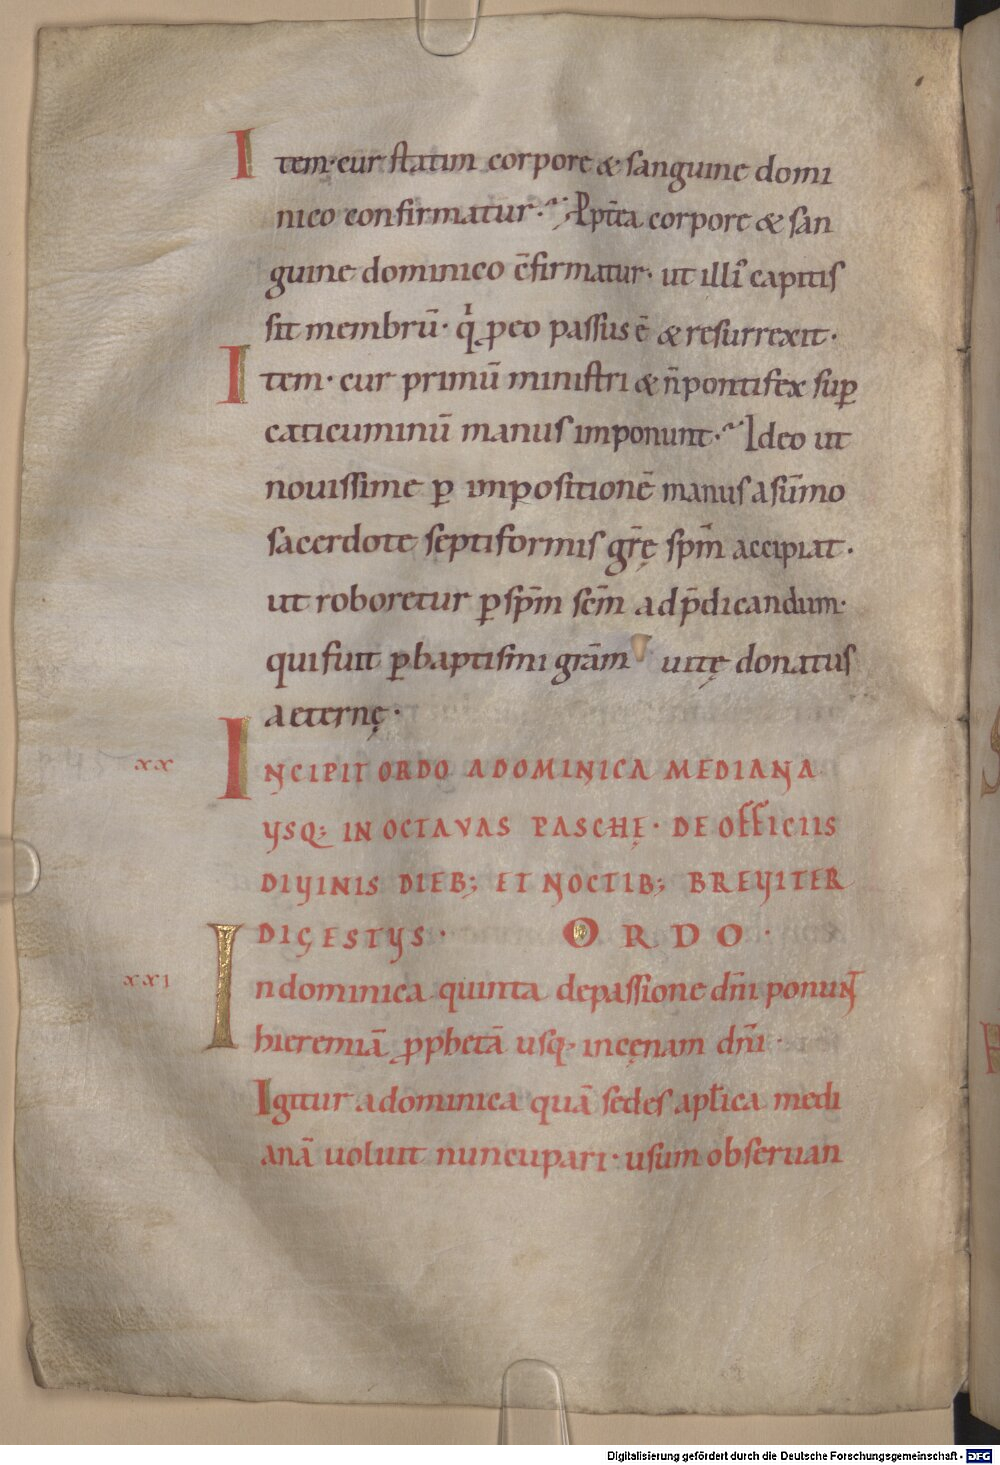 Item· cur statim corpore & sanguine domi
nico confirmatur· Pptea corpore & san
guine dominico c̄firmatur· ut illi᾿ capitis
sit membrū· q̍ p eo passus ē & resurrexit·
Item· cur primū ministri & n̄ pontifex sup
caticuminū manus imponunt· Ideo ut
nouissime p impositionē manus a sūmo
sacerdote septiformis gr̄ę sp̄m accipiat·
ut roboretur p sp̄m sc̄m ad p̄dicandum·
qui fuit p baptismi grām uitę donatus
aeternę·
xx INCIPIT ORDO A DOMINICA MEDIANA
VSQ; IN OCTAVAS PASCHĘ· DE OFFICIIS
DIVINIS DIEB; ET NOCTIB; BREVITER
DIGESTVS· ORDO·
xxi In dominica quinta de passione dn̄i ponunt
hieremiā pphetā usq· in cęnam dn̄i·
Igitur a dominica quā sedes apl̄ica medi
anā uoluit nuncupari· usum obseruan
Digitalisierung gefördert durch die Deutsche Forschungsgemeinschaft - DFG